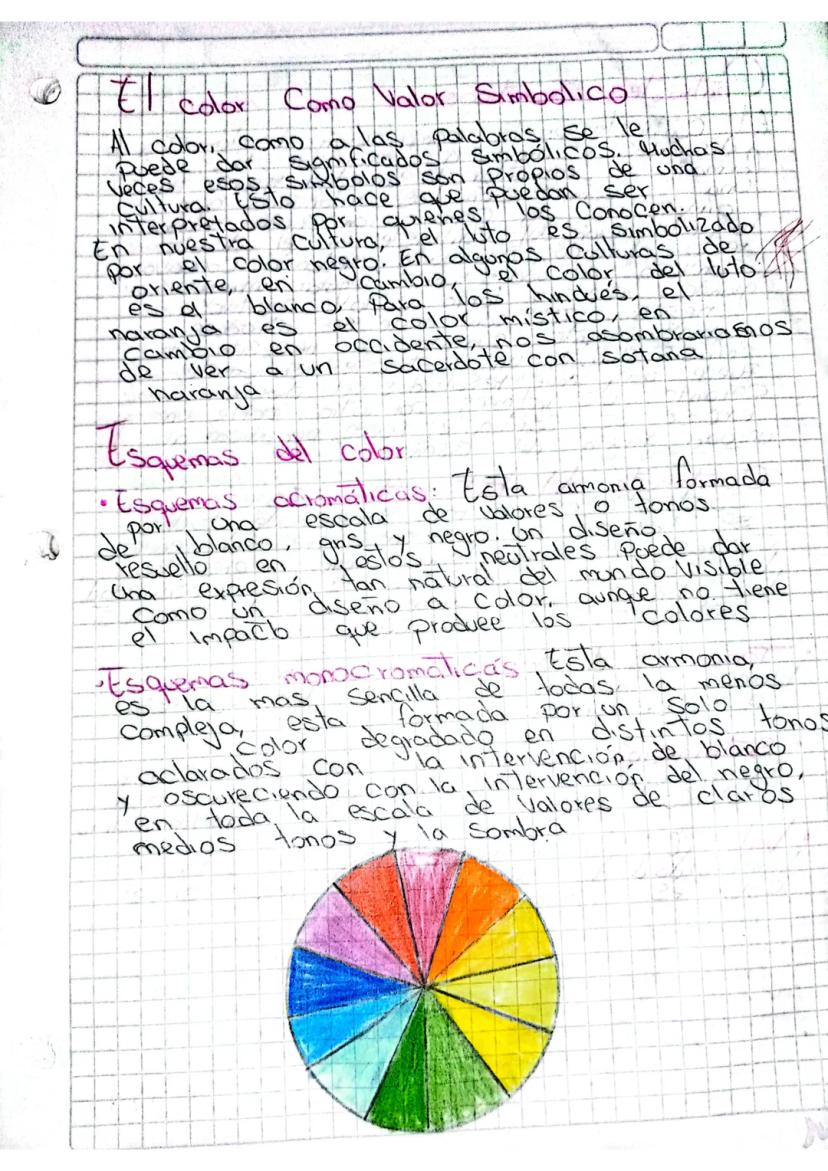 El color Como Valor Simbolico
Al color, como a las palabras se le
Puede dar significados simbólicos. Muchas
Veces esos simbolos son propios de una
Cultura. Esto hace que puedan ser
interpretados por quienes los Conocen.
En nuestra cultura, el luto es simbolizado
por el color negro. En algunos Culturas de
oriente, en cambio, el color del luto
es el blanco, Para los hindués, el
naranja es el color místico, en
cambio en occidente, nos asombrariamos
de ver a un sacerdote con sotana
naranja
Esquemas del color
• Esquemas acromáticas: Esta armonia formada
por una escala de valores o tonos
de blanco, gris y negro. un diseño
resuello en estos neutrales puede dar
una expresión tan natural del mundo visible
como un diseño a color, aunque no tiene
el impacto que produce los colores
• Esquemas monocromaticas Esta armonia,
es la mas sencilla de todas, la menos
compleja, esta formada por un solo
color degradado en distintos tonos
aclarados con la intervención, de blanco
y oscureciendo con la intervención del negro,
en toda la escala de valores de claros
medios tonos y la sombra